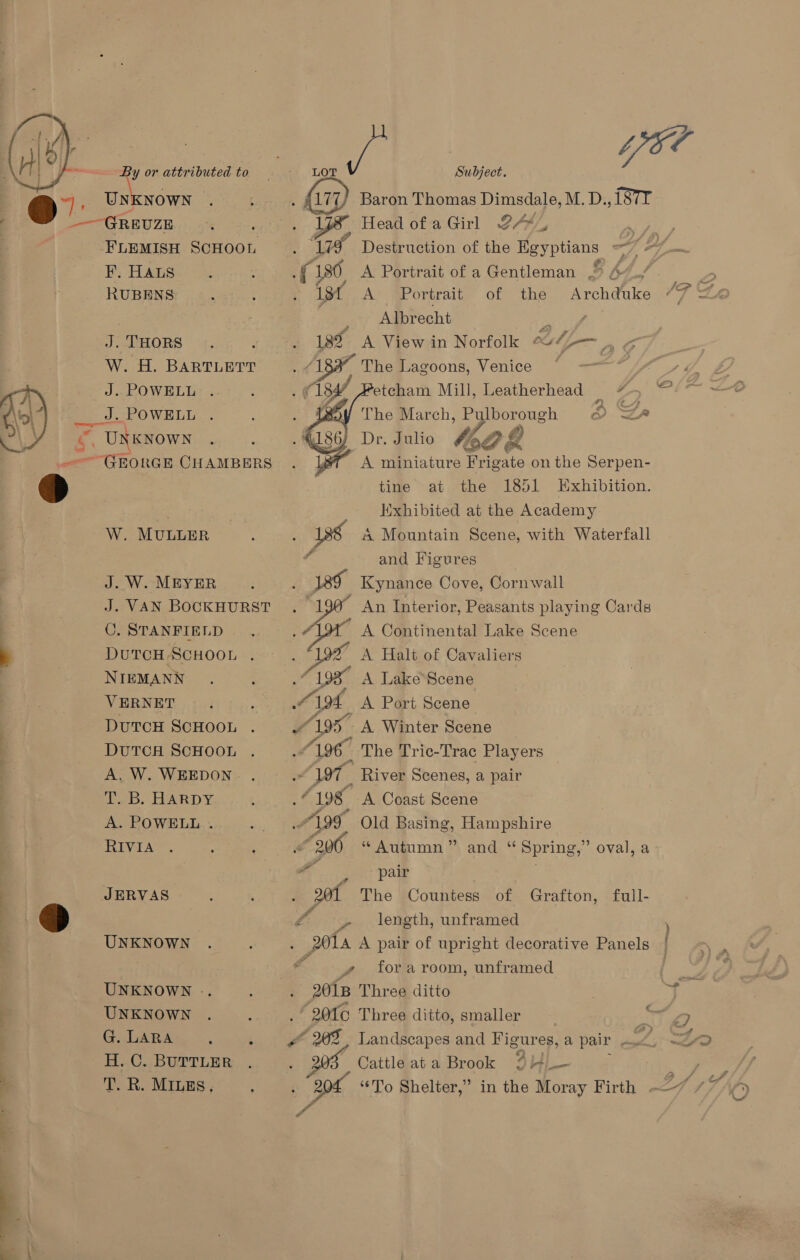 11
By or attributed to LOT Subject.
UNKNOWN . . . 177 Baron Thomas Dimsdale, M.D., 1877
GREUZE . . . 178 Head of a Girl
FLEMISH SCHOOL . 179 Destruction of the Egyptians
F. HALS . . . 180 A Portrait of a Gentleman
RUBENS . . . 181 A Portrait of the Archduke
Albrecht
J. THORS . . . 182 A View in Norfolk
W. H. BARTLETT . 183 The Lagoons, Venice
J. POWELL . . . 184 Fetcham Mill, Leatherhead
J. POWELL . . . 185 The March, Pulborough
UNKNOWN . . . 186 Dr. Julio
GEORGE CHAMBERS . 187 A miniature Frigate on the Serpen-
tine at the 1851 Exhibition.
Exhibited at the Academy
W. MULLER . . 188 A Mountain Scene, with Waterfall
and Figures
J. W. MEYER . . 189 Kynance Cove, Cornwall
J. VAN BOCKHURST . 190 An Interior, Peasants playing Cards
C. STANFIELD . . 191 A Continental Lake Scene
DUTCH SCHOOL . . 192 A Halt of Cavaliers
NIEMANN . . . 193 A Lake Scene
VERNET . . . 194 A Port Scene
DUTCH SCHOOL . . 195 A Winter Scene
DUTCH SCHOOL . . 196 The Tric-Trac Players
A. W. WEEDON . . 197 River Scenes, a pair
T. B. HARDY . . 198 A Coast Scene
A. POWELL . . . 199 Old Basing, Hampshire
RIVIA . . . 200 “Autumn” and “Spring,” oval, a
pair
JERVAS . . . 201 The Countess of Grafton, full-
length, unframed
UNKNOWN . . . 201A A pair of upright decorative Panels
for a room, unframed
UNKNOWN . . . 201B Three ditto
UNKNOWN . . . 201C Three ditto, smaller
G. LARA . . . 202 Landscapes and Figures, a pair
H. C. BUTTLER . . 203 Cattle at a Brook
T. R. MILES, . . 204 “To Shelter,” in the Moray Firth